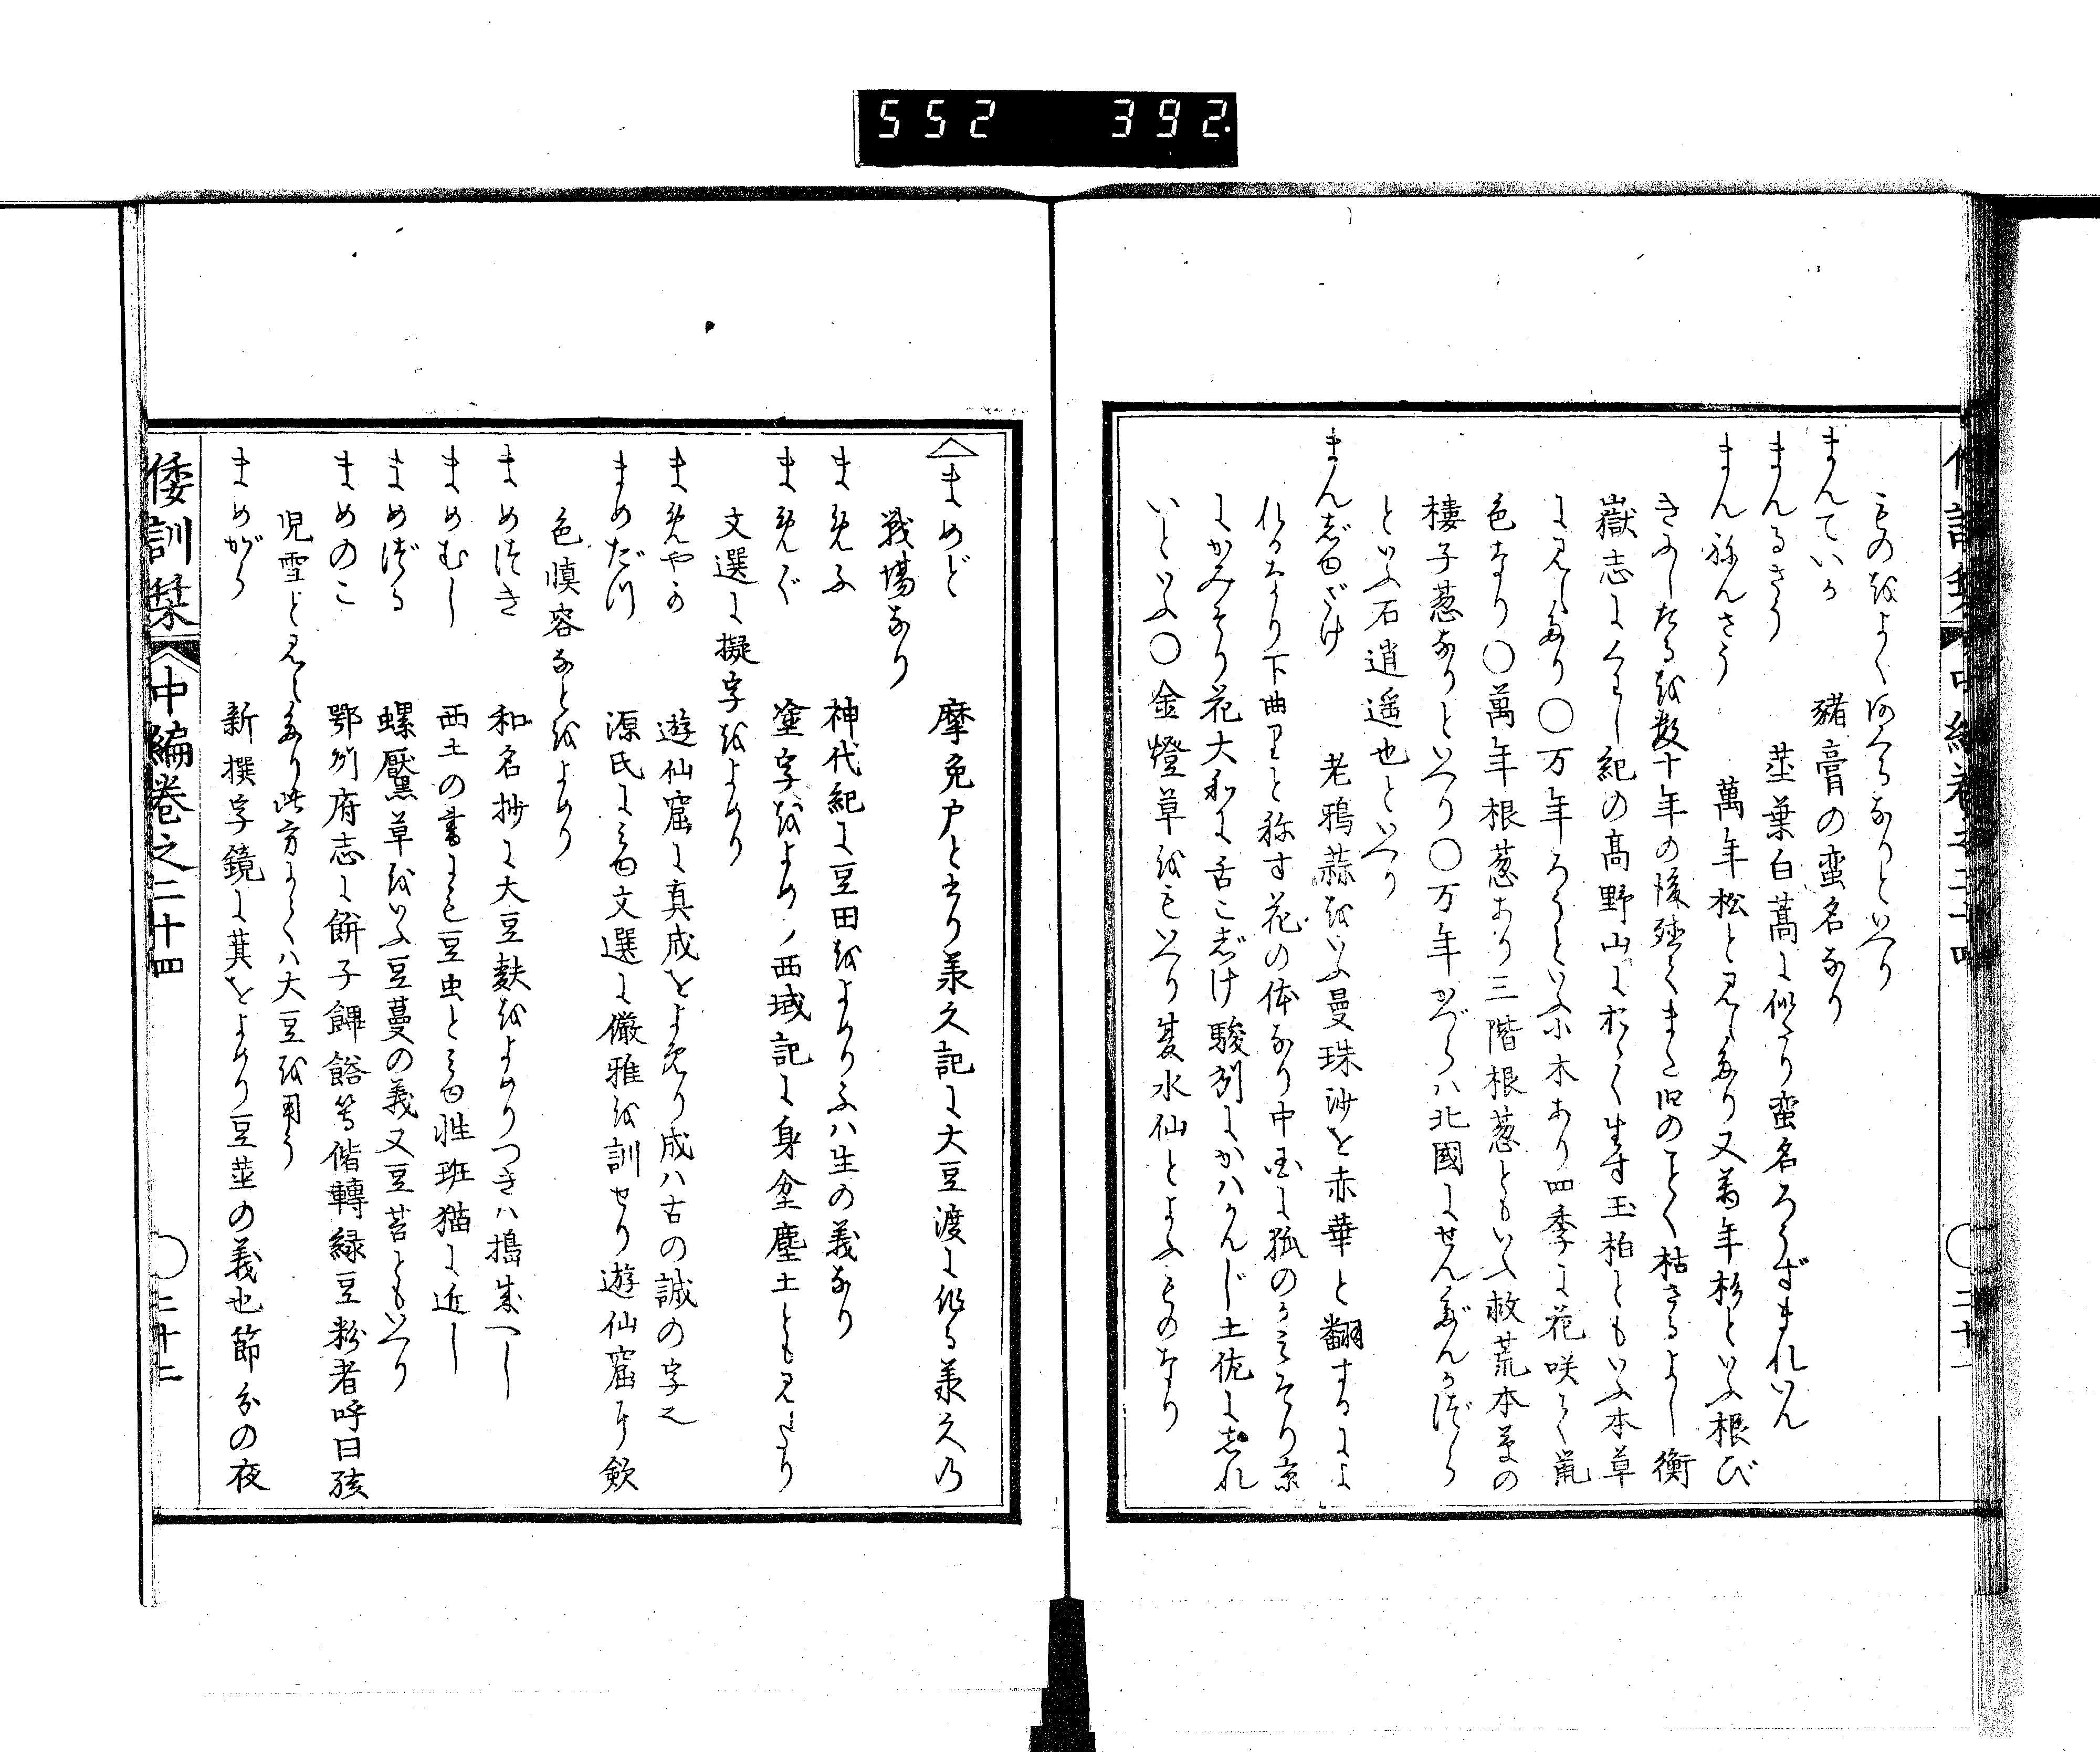 552 392
ものをよく消へるなりといへり
まんていか 豬膏の蛮名なり
まんるさう 茎葉白蒿に似たり蛮名ろうずまれいん
まんねんさう 萬年松と見えたり又萬年杉といふ根び
きにしたるを数十年の後残くまた旧のことく枯さるよし衡
嶽志にくはし紀の高野山におほく生す玉柏ともいふ本草
に見えたり〇万年ろうといふ小木あり四季に花咲て常
色なり〇萬年根葱あり三階根葱ともいふ救荒本草の
樓子葱なりといへり〇万年かづらハ北國にせんだんかづら
といふ石逍遥也といへり
まんじゆざけ 老鴉蒜をいふ曼珠沙を赤華と翻するによ
れるなり下曲りと称す花の体なり中国に狐のかみそり京
にかみそり花大和に舌こじけ駿州にかハかんじ土佐にしれ
いといふ〇金燈草をもいへり夏水仙とよふものなり
倭訓栞 中編巻之二十四 〇二十一
まめど 摩免戸と書り承久記に大豆渡に作る承久乃
戦場なり
まめふ 神代紀に豆田をよめりふハ生の義なり
まめぐ 塗字をよめり西域記に身坌塵土とも見えたり
文選に擬字をよめり
まめやか 遊仙窟に真成をよめり成ハ古の誠の字也
まめだつ 源氏にみゆ文選に儼雅を訓せり遊仙窟に斂
色慎容なとをよめり
まめつき 和名抄に大豆麩をよめりつきハ搗成へし
まめむし 西土の書にも豆虫とみゆ性斑猫に近し
まめづる 螺厴草をいふ豆蔓の義又豆苔ともいへり
まめのこ 鄂州府志に餅子餫餎等偕轉緑豆粉者呼曰孩
児雪と見えたり此方にてハ大豆を用う
まめがら 新撰字鏡に萁をよめり豆茎の義也節分の夜
倭訓栞 中編巻之二十四 〇二十二